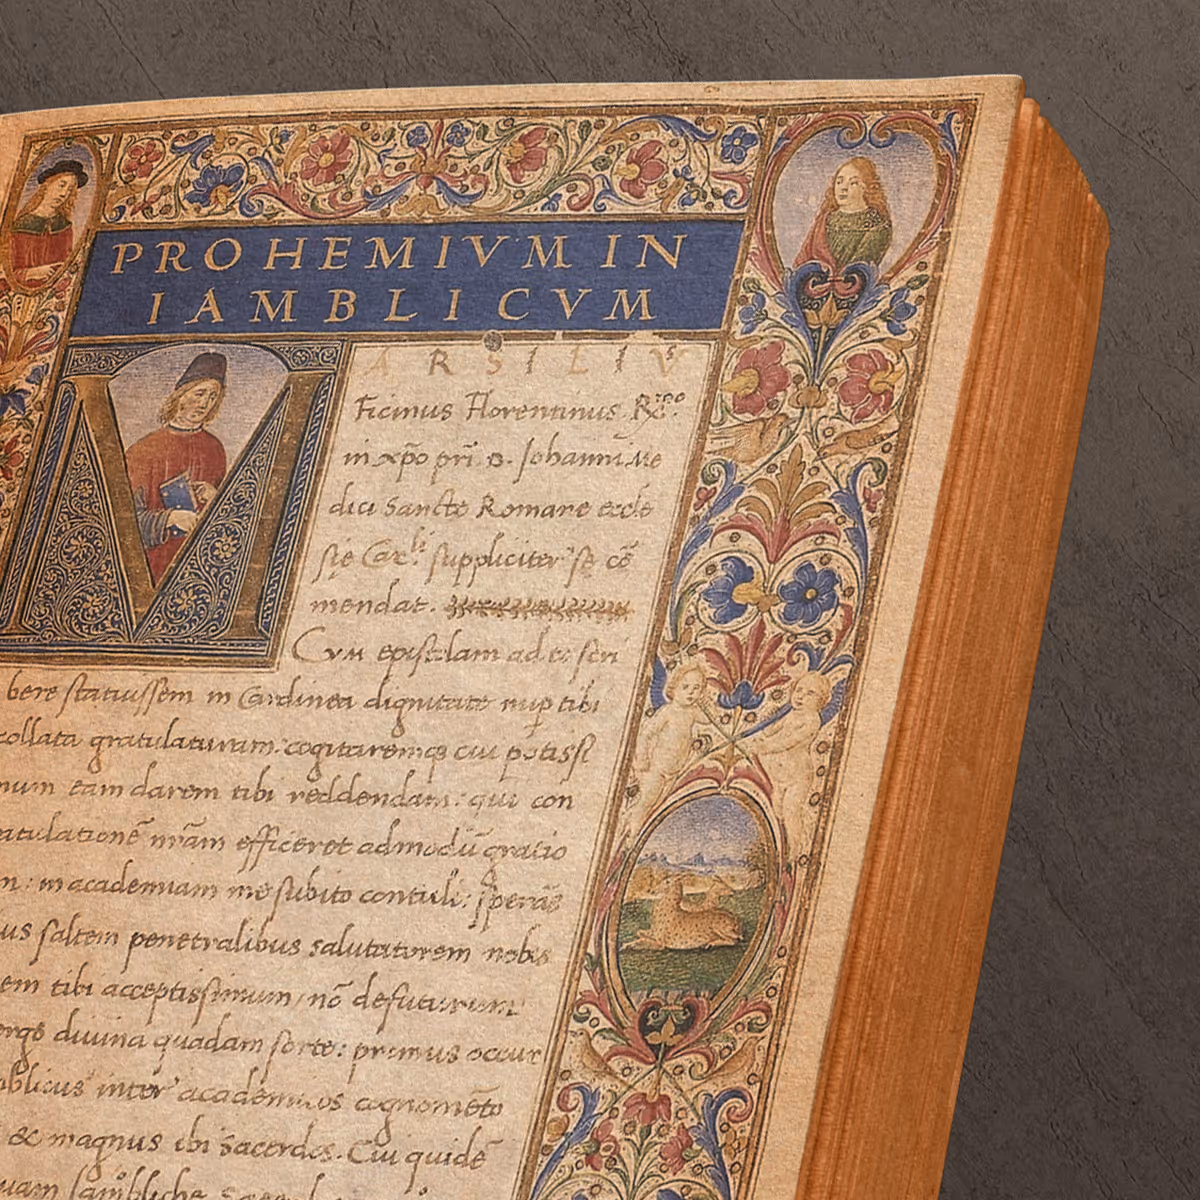 PROHEMIVM IN
IAMBLICVM
MARSILIV
Ficinus Florentinus
in xp̄o pr̄i D. Johanni Me
dici Sancte Romane eccle
się Car.li suppliciter se cō
mendat.
CVM epistolam ad te scri
bere statuissem in Cardinea dignitate nup tibi
collata gratulaturam: cogitaremq cui potiss
mum eam darem tibi reddendam: qui con
gratulationē nr̄am efficeret admodū gratio
in academiam me subito contuli: sperās
saltem penetralibus salutatorem nobis
tibi acceptissimum nō defuturum
ergo diuina quadam sorte: primus occur
inter academicos cognomēto
& magnus ibi sacerdos. Cui quidē
Iambliche